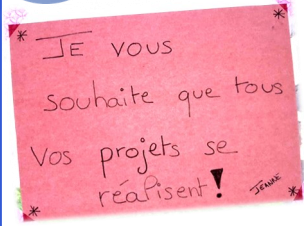 JE VOUS
souhaite que tous
Vos projets se
réalisent !
JEANNE